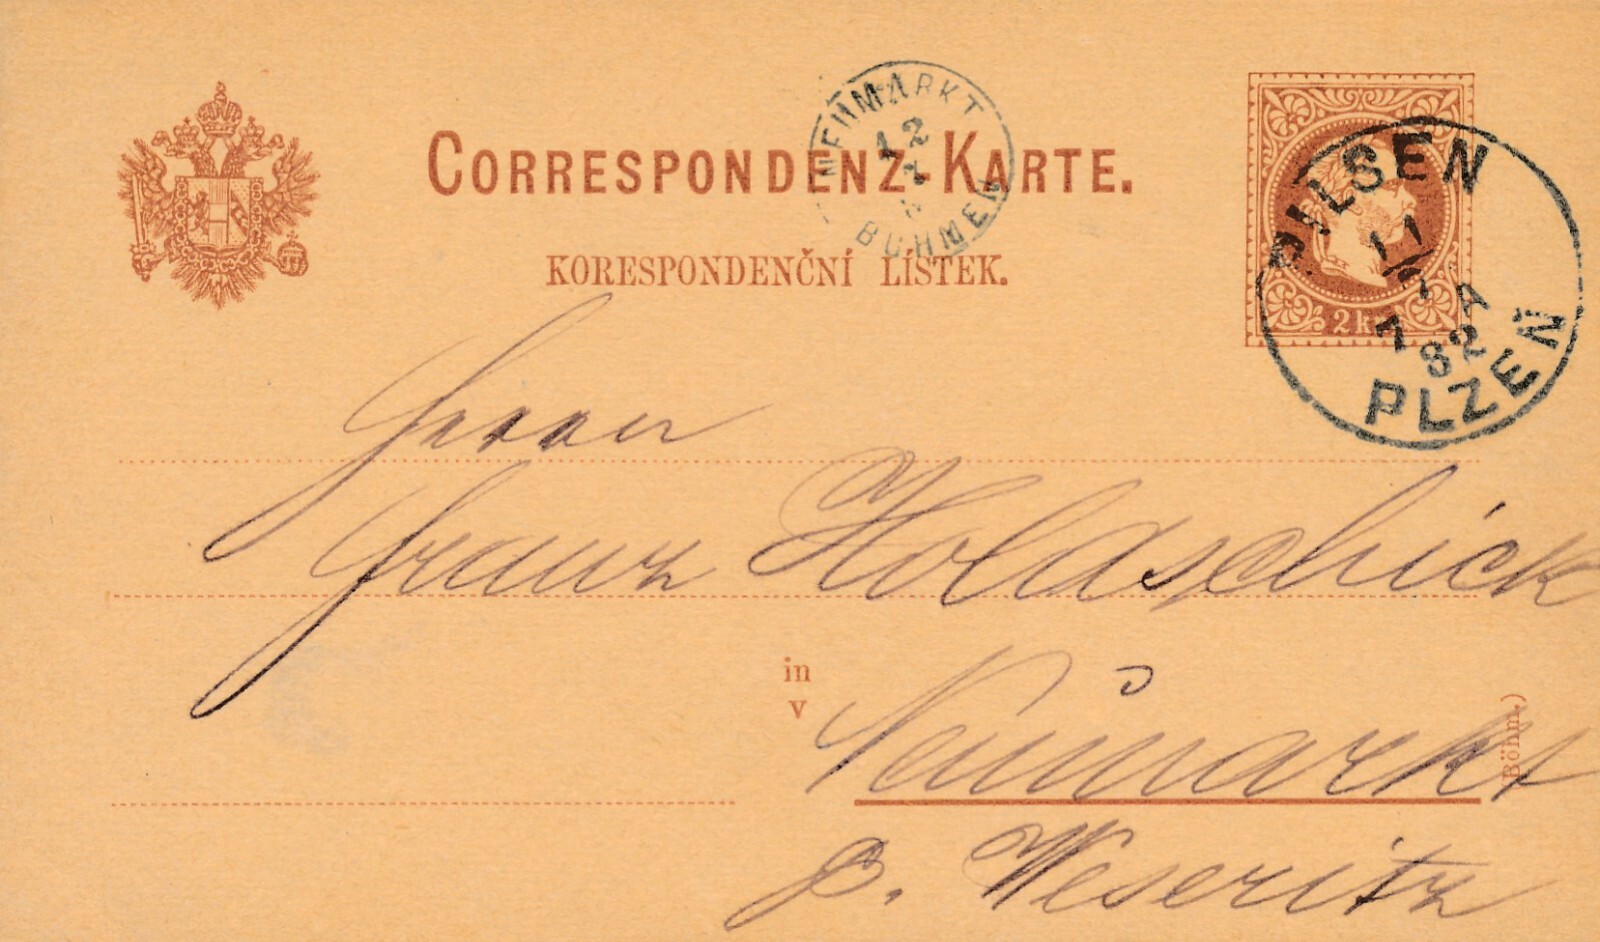 CORRESPONDENZ-KARTE.
KORESPONDENČNÍ LÍSTEK.
NEUMARKT
12
7
BÖHMEN
2 kr.
PILSEN
11
7 A
7 82
PLZEŇ
Herrn
Franz Holdschick
in
v
Neumarkt
(Böhm.)
p. Weseritz